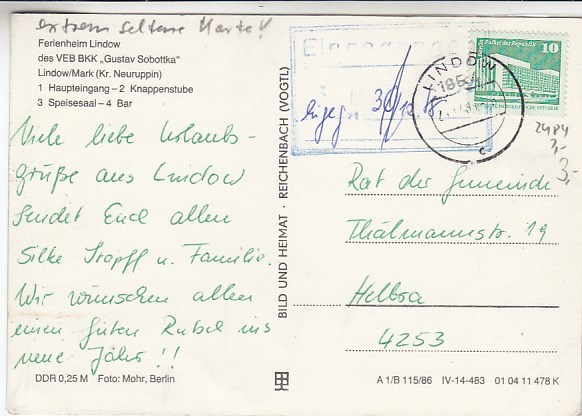 extrem seltene Karte!
Ferienheim Lindow
des VEB BKK „Gustav Sobottka“
Lindow/Mark (Kr. Neuruppin)
1 Haupteingang – 2 Knappenstube
3 Speisesaal – 4 Bar
Viele liebe Urlaubs-
grüße aus Lindow
sendet Euch allen
Silke Trapff u. Familie.
Wir wünschen allen
einen guten Rutsch ins
neue Jahr!!
DDR 0,25 M Foto: Mohr, Berlin
BILD UND HEIMAT · REICHENBACH (VOGTL)
Eingegangen
eingeg. 30/12
LINDOW
c
Palast der Republik 10
2484
3,-
3,-
Rat der Gemeinde
Thälmannstr. 19
Helbra
4253
A 1/B 115/86 IV-14-483 01 04 11 478 K